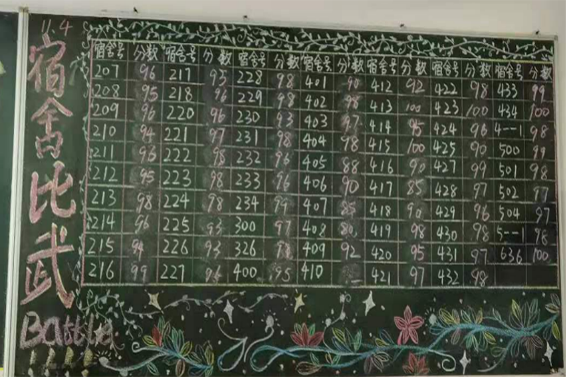 11.4
宿舍比武
Battled
宿舍号 分数 宿舍号 分数 宿舍号 分数 宿舍号 分数 宿舍号 分数 宿舍号 分数 宿舍号 分数
207 96 217 93 228 98 401 90 412 92 422 98 433 99
208 95 218 229 98 402 98 413 100 423 100 434 100
209 96 220 96 230 93 403 97 414 95 424 96 4-1 98
210 94 221 97 231 98 404 98 415 100 425 90 500 99
211 96 222 98 232 96 405 88 416 427 99 501 98
212 95 223 98 233 96 406 90 417 85 428 97 502
213 98 224 98 234 407 85 418 90 429 96 504 97
214 96 225 93 300 97 408 419 98 430 5-1 98
215 226 93 326 98 409 92 420 95 431 97 636 100
216 99 227 96 400 95 410 421 97 432 98